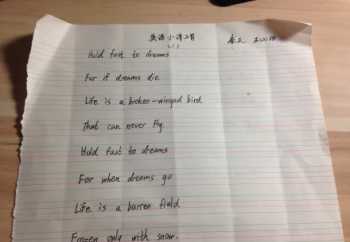 英语小诗二首
Hold fast to dreams
For if dreams die
Life is a broken-winged bird
That can never fly.
Hold fast to dreams
For when dreams go
Life is a barren field
Frozen only with snow.